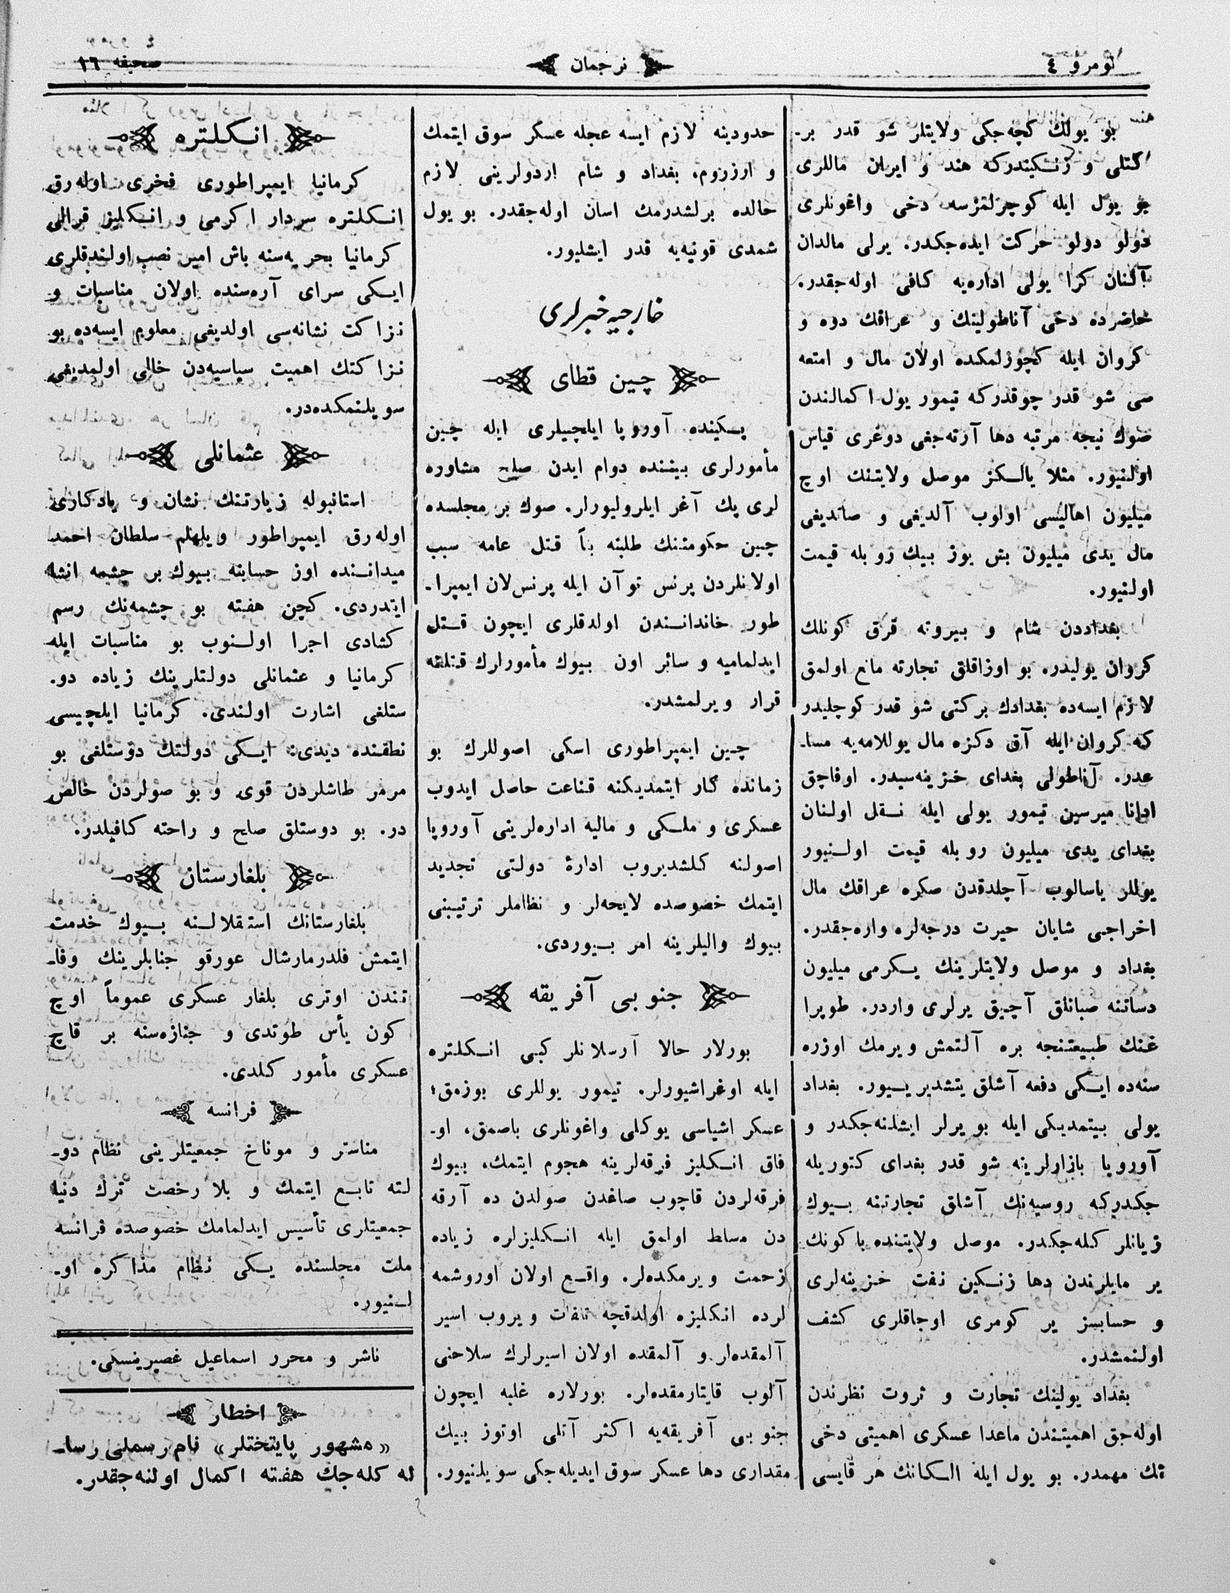 نومرو ٤
ترجمان
صحیفه ١٦
بو یولك كچه‌جكی ولایتلر شو قدر بر‍ـ
كتلی و زنـكیندركه هند و ایران ماللری
بو یول ایله كوچرلمزسه دخی واغونلری
دولو دولو حركت ایده‌جكدر. یرلی مالدان
آلنان كرا یولی اداره‌یه كافی اوله‌جقدر.
حاضرده دخی آناطولینك و عراقك دوه و
كروان ایله كچورلمكده اولان مال و امتعه
سی شو قدر چوقدركه تیمور یول اكمالندن
صوك نیجه مرتبه دها آرته‌جغی دوغری قیاس
اولنیور. مثلا یالـكز موصل ولایتنك اوچ
میلیون اهالیسی اولوب آلدیغی و صاتدیغی
مال یدی میلیون بش یوز بیك روبله قیمت
اولنیور.
بغداددن شام و بیروته قرق كونلك
كروان یولیدر. بو اوزاقلق تجارته مانع اولمق
لازم ایسه‌ده بغدادك بركتی شو قدر كوچلیدر
كه كروان ایله آق دكزه مال یوللامه‌یه مسا‍ـ
عدر. آناطولی بغدای خزینه‌سیدر. اوفاچق
ادانا میرسین تیمور یولی ایله نـقل اولنان
بغدای یدی میلیون روبله قیمت اولـنیور
یوللر یاسالوب آچلدقدن صكره عراقك مال
اخراجی شایان حیرت درجه‌لره واره‌جقدر.
بغداد و موصل ولایتلرینك یـكرمی میلیون
دساتنه صبانلق آچیق یرلری واردر. طوپرا
غنك طبیعتنجه بره آلتمش ویرمك اوزره
سنه‌ده ایـكی دفعه آشلق یتشدیریـیور. بغداد
یولی بیتمدیكی ایله بو یرلر ایشلنه‌جكدر و
آوروپا بازارلرینه شو قدر بغدای كتوریله
جكدركه روسیه‌نك آشلق تجارتنه بـیوك
زیانلر كله‌جكدر. موصل ولایتنده باكونك
یر مایلرندن دها زنـكین نفت خزینه‌لری
و حسابسز یر كومری اوجاقلری كشف
اولنمشدر.
بغداد یولینك تجارت و ثروت نظرندن
اوله‌جق اهمیتندن ماعدا عسكری اهمیتی دخی
تك مهمدر. بو یول ایله الـكانك هر قایسی
حدودینه لازم ایسه عجله عسكر سوق ایتمك
و ارزروم، بغداد و شام اردولرینی لازم
حالده برلشدرمك اسان اوله‌جقدر. بو یول
شمدی قونیه‌یه قدر ایشلیور.
خارجیه خبرلری
چین قطای
پـكینده آوروپا ایلچیلری ایله چین
مأمورلری بیتنده دوام ایدن صلح مشاوره
لری پك آغر ایلرولیورلر. صوك بر مجلسده
چین حكومتنك طلبنه بناً قتل عامه سبب
اولانلردن پرنس توآن ایله پرنس لان ایمپرا‍ـ
طور خاندانـندن اولدقلری ایچون قـتل
ایدلمامیه و سائر اون بیوك مأمورارك قتلنه
قرار ویرلمشدر.
چین ایمپراطوری اسكی اصوللرك بو
زمانده كار ایتمدیكنه قناعت حاصل ایدوب
عسكری و ملـكی و مالیه اداره‌لرینی آوروپا
اصولنه كلشدیروب ادارهٔ دولتی تجدید
ایتمك خصوصده لایحه‌لر و نظاملر ترتیبنی
بیوك والیلرینه امر بـیوردی.
جنوبی آفریقه
بورلار حالا آرسلانلر كبی انـكلتره
ایله اوغراشیورلر. تیمور یوللری بوزمق؛
عسكر اشیاسی یوكلی واغونلری باصمق، او‍ـ
فاق انـكلیز فرقه‌لرینه هجوم ایتمك، بیوك
فرقه‌لردن قاچوب صاغدن صولدن ده آرقه
دن مسلط اولمق ایله انـكلیزلره زیاده
زحمت ویرمكده‌لر. واقـع اولان اوروشمه
لرده انكلیزه اولدقچه تلفات ویروب اسیر
آلمقده‌لر و آلمقده اولان اسیرلرك سلاحنی
آلوب قایتارمقده‌لر. بورلاره غلبه ایچون
جنوبی آفریقه‌یه اكثر آتلی اوتوز بیك
مقداری دها عسكر سوق ایدیله‌جكی سویلنیور.
انـكلتره
كرمانیا ایمپراطوری فخری اوله‌رق
انـكلتره سردار اكرمی و انـكلیز قرالی
كرمانیا بحریه‌سنه باش امیر نصب اولندقلری
ایـكی سرای آره‌سنده اولان مناسبات و
نزاكت نشانه‌سی اولدیغی معلوم ایسه‌ده بو
نزاكتك اهمیت سیاسیه‌دن خالی اولمدیغی
سویلنمكده‌در.
عثمانلی
استانبوله زیارتنك نشان و یادكاری
اوله‌رق ایمپراطور ویلهلم سلطان احمد
میدانـنده اوز حسابنه بیوك بر چشمه انشا
ایتدردی. كچن هفته بو چشمه‌نك رسم
كشادی اجرا اولـنوب بو مناسبات ایله
كرمانیا و عثمانلی دولتلرینك زیاده دو‍ـ
ستلغی اشارت اولندی. كرمانیا ایلچیسی
نطقنده دیدی: ایـكی دولتك دوستلغی بو
مرمر طاشلردن قوی و بو صولردن خالص
در. بو دوستلق صلح و راحته كافیلدر.
بلغارستان
بلغارستانك استقلالـنه بـیوك خدمت
ایتمش فلدرمارشال غورقو جنابلرینك وفا‍ـ
تندن اوتری بلغار عسكری عموماً اوچ
كون یأس طوتدی و جنازه‌سنه بر قاچ
عسكری مأمور كلدی.
فرانسه
مناستر و موناخ جمعیتلرینی نظام دو‍ـ
لته تابـع ایتمك و بلا رخصت ترك دنیا
جمعیتلری تأسیس ایدلمامك خصوصده فرانسه
ملت مجلسنده یـكی نظام مذاكره او‍ـ
لـنیور.
ناشر و محرر اسماعیل غصپرینسكی.
اخطار
«مشهور پایتختلر» نام رسملی رسا‍ـ
له كله‌جك هفته اكمال اولنه‌جقدر.